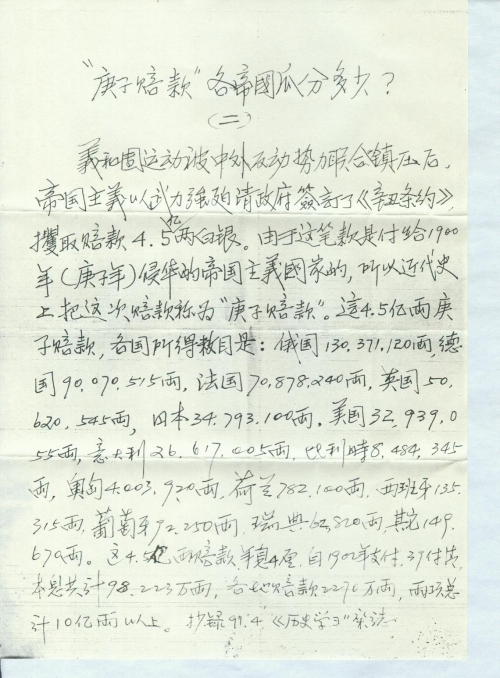 “庚子赔款”各帝國瓜分多少？
(二)
義和团运动被中外反动势力联合镇压后，
帝国主義以武力强迫清政府簽訂了《辛丑条约》，
攫取赔款4.5亿两白银。由于这笔款是付给1900
年(庚子年)侵华的帝国主義國家的，所以近代史
上把这次赔款称为“庚子赔款”。這4.5亿兩庚
子赔款，各国所得数目是：俄国130,371,120兩，德
国90,070,515兩，法国70,878,240兩，英国50,
620,545兩，日本34,793,100兩，美国32,939,0
55兩，意大利26,617,005兩，比利時8,484,345
兩，奥匈4,003,920兩，荷兰782,100兩，西班牙135,
315兩，葡萄牙92,250兩，瑞典62,820兩，其它149,
670兩。这4.5亿兩赔款年息4厘，自1902年支付，39付清，
本息共计98,223万兩，各地赔款2270万兩，兩项总
计10亿兩以上。抄録91.4《历史学习》杂志